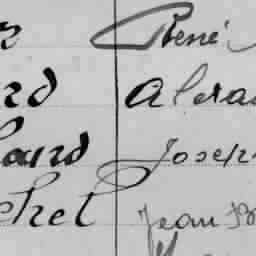 r René
rd Alexa
hard Joseph
chet Jean B